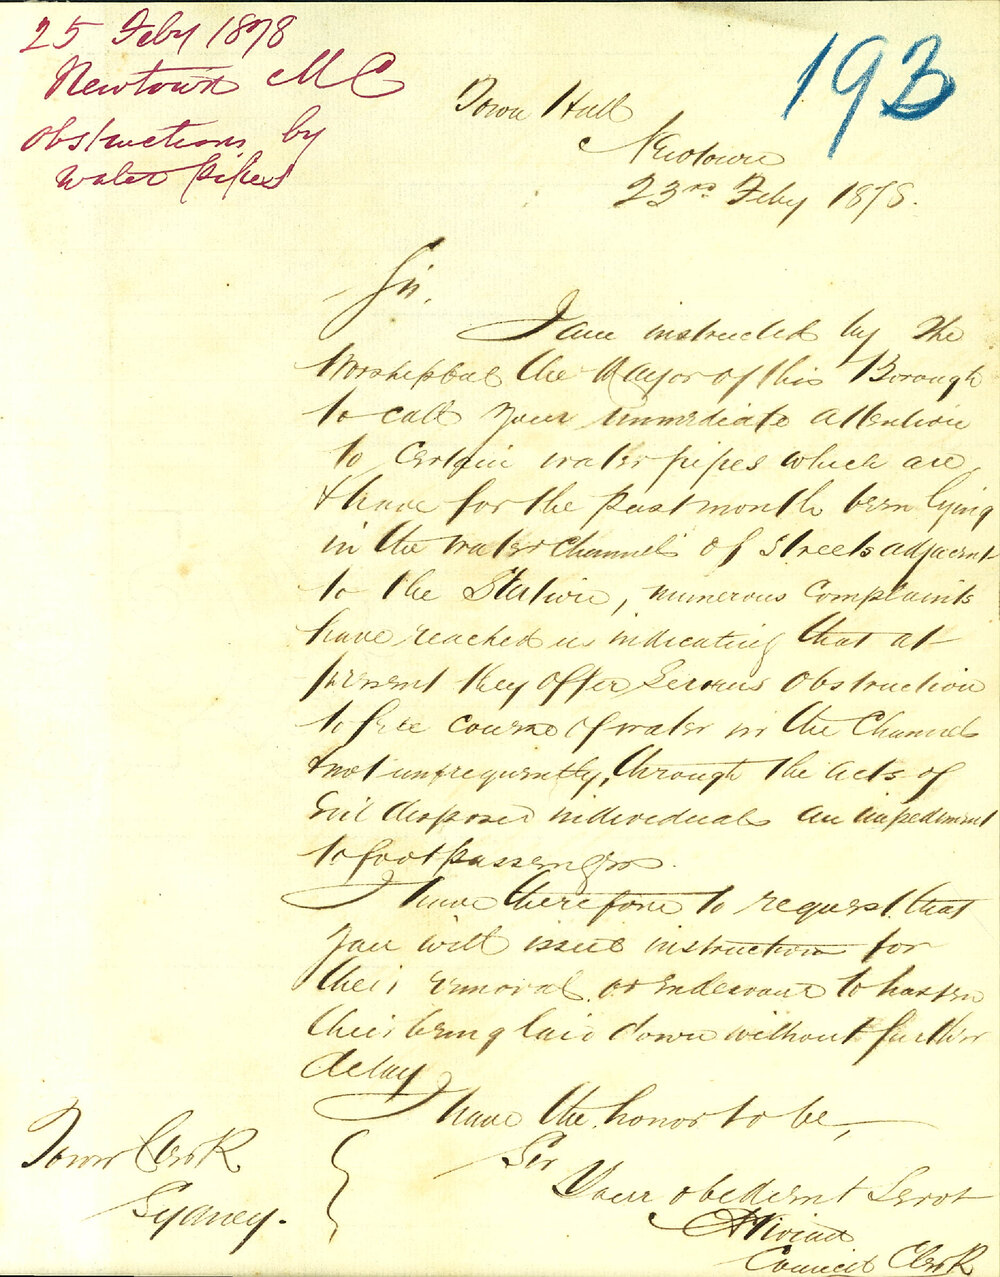 25 Feby 1878
Newtown M C
Obstructions by
water pipes
193
Town Hall
Newtown
23rd Feby 1878.
Sir,
I am instructed by The
Worshipful the Mayor of this Borough
to call your immediate attention
to certain water pipes which are
& have for the past month been lying
in the water channels of streets adjacent
to the Station, numerous complaints
have reached us indicating that at
present they offer serious obstruction
to free course of water in the Channels
& not unfrequently, through the acts of
evil disposed individuals an impediment
to foot passengers.
I have therefore to request that
you will issue instructions for
their removal or endeavour to hasten
their being laid down without further
delay
I have the honor to be,
Sir
Your obedient Servt
Council Clerk
Town Clerk
Sydney.